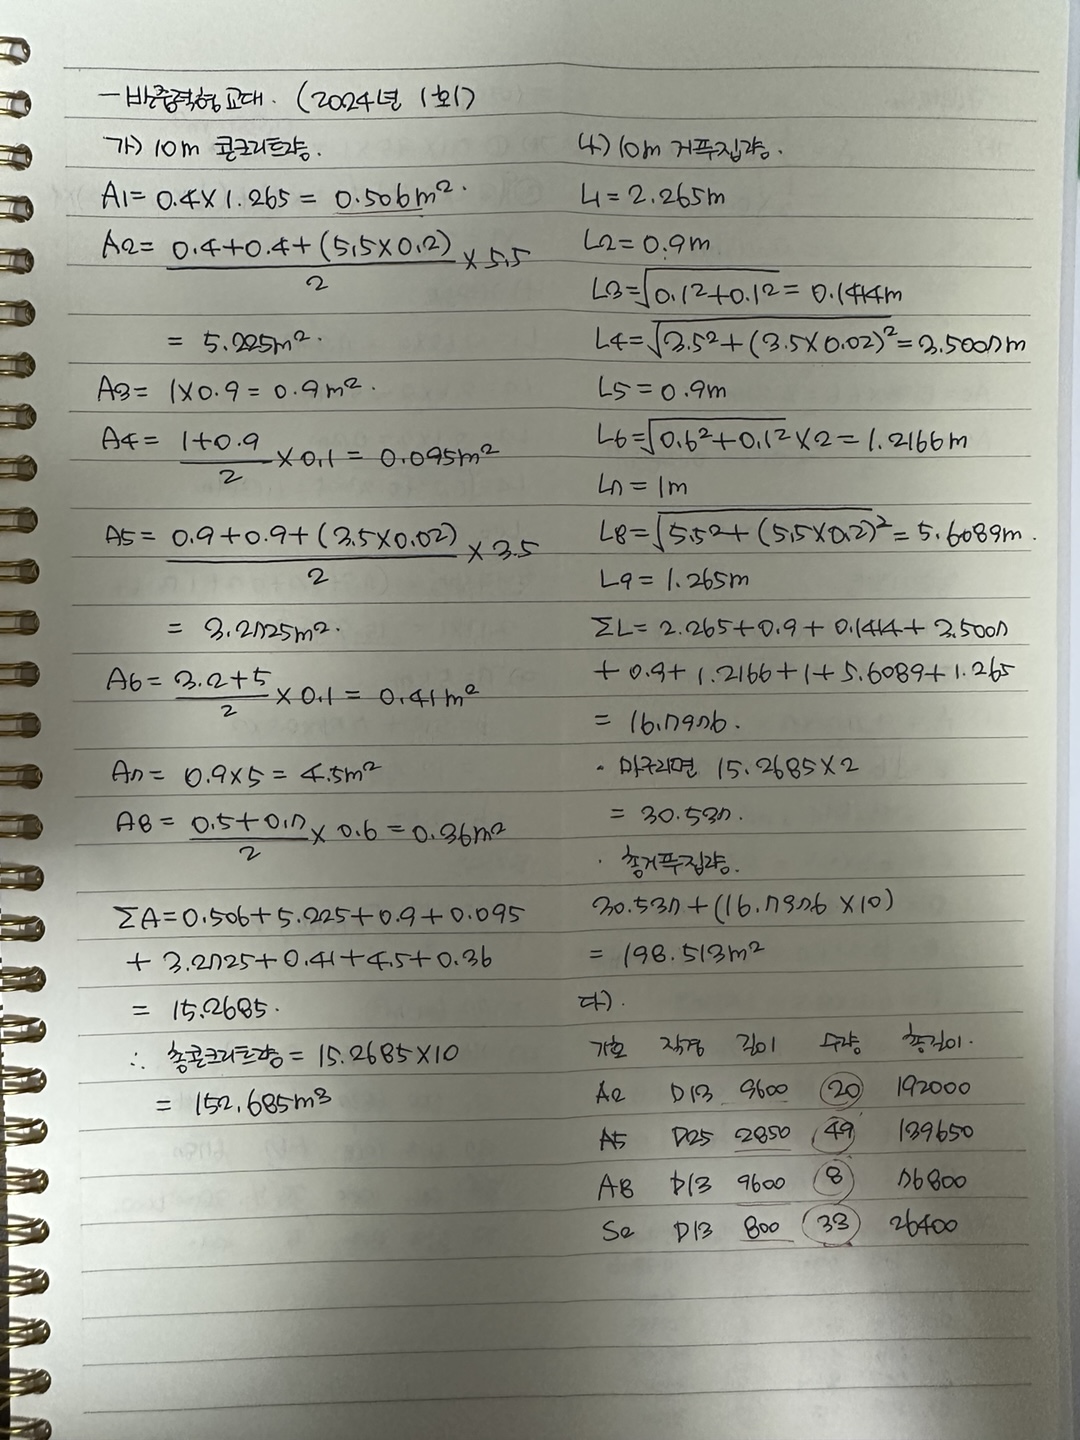 - 반중력형 교대. (2024년 1회)
가) 10m 콘크리트량.
A1= 0.4X1.265 = 0.506m².
A2= 0.4+0.4+(5.5X0.2) / 2 X 5.5
= 5.225m².
A3= 1X0.9 = 0.9m².
A4= 1+0.9 / 2 X 0.1 = 0.095m²
A5= 0.9+0.9+(3.5X0.02) / 2 X 3.5
= 3.2725m².
A6= 3.2+5 / 2 X 0.1 = 0.41m²
A7= 0.9X5= 4.5m²
A8= 0.5+0.7 / 2 X 0.6 = 0.36m²
ΣA=0.506+5.225+0.9+0.095
+ 3.2725+0.41+4.5+0.36
= 15.2685.
∴ 총콘크리트량= 15.2685X10
= 152.685m³
나) 10m 거푸집량.
L1= 2.265m
L2= 0.9m
L3=√0.1²+0.1² = 0.1414m
L4=√3.5²+(3.5X0.02)² = 3.5007m
L5= 0.9m
L6=√0.6²+0.1² X2= 1.2166m
L7= 1m
L8=√5.5²+(5.5X0.2)² = 5.6089m.
L9= 1.265m
ΣL= 2.265+0.9+0.1414+3.5007
+ 0.9+1.2166+1+5.6089+1.265
= 16.7976.
· 마구리면 15.2685X2
= 30.537.
· 총거푸집량.
30.537+(16.7976X10)
= 198.513m²
다).
기호 직경 길이 수량 총길이.
A2 D13 9600 20 192000
A5 D25 2850 49 139650
A8 D13 9600 8 76800
S2 D13 800 33 26400